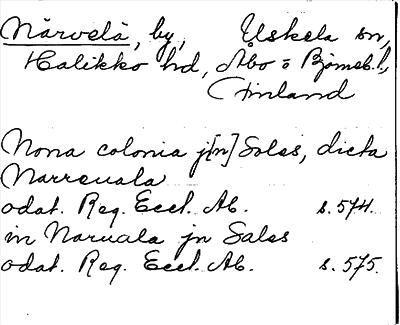 Närvelä, by, Uskela sn,
Halikko hd, Åbo o Björneb. l,
Finland
Nona colonia j[n] Salos, dicta
Narreuala
odat. Reg. Eccl. Ab. s. 574.
in Naruala jn Salos
odat. Reg. Eccl. Ab. s. 575.